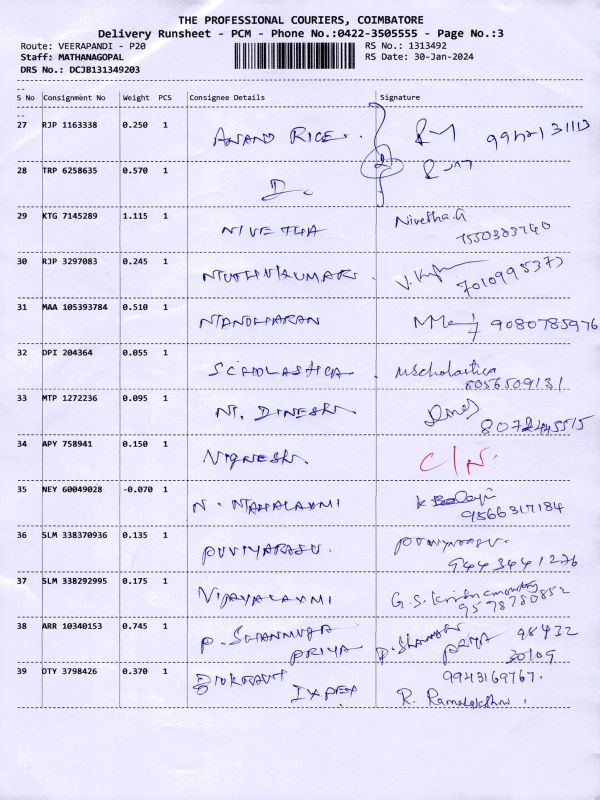 THE PROFESSIONAL COURIERS, COIMBATORE
Delivery Runsheet - PCM - Phone No.:0422-3505555 - Page No.:3
Route: VEERAPANDI - P20 RS No.: 1313492
Staff: MATHANAGOPAL RS Date: 30-Jan-2024
DRS No.: DCJB131349203
S No Consignment No Weight PCS Consignee Details Signature
27 RJP 1163338 0.250 1 ANAND RICE
28 TRP 6258635 0.570 1
29 KTG 7145289 1.115 1 NIVETHA Nivetha.G
30 RJP 3297083 0.245 1 7010995373
31 MAA 105393784 0.510 1 9080785976
32 DPI 204364 0.055 1 SCHOLASTICA
8056509131
33 MTP 1272236 0.095 1 DINESH
34 APY 758941 0.150 1 VIGNESH C/N.
35 NEY 60049028 -0.070 1 N. MAHALAXMI
9566317184
36 SLM 338370936 0.135 1 PUVIYARASU.
9443441276
37 SLM 338292995 0.175 1 VIJAYALAXMI
9578780852
38 ARR 10340153 0.745 1 P. SHANMUGA
PRIYA PRIYA 98432
30109
39 OTY 3798426 0.370 1 9943169767.